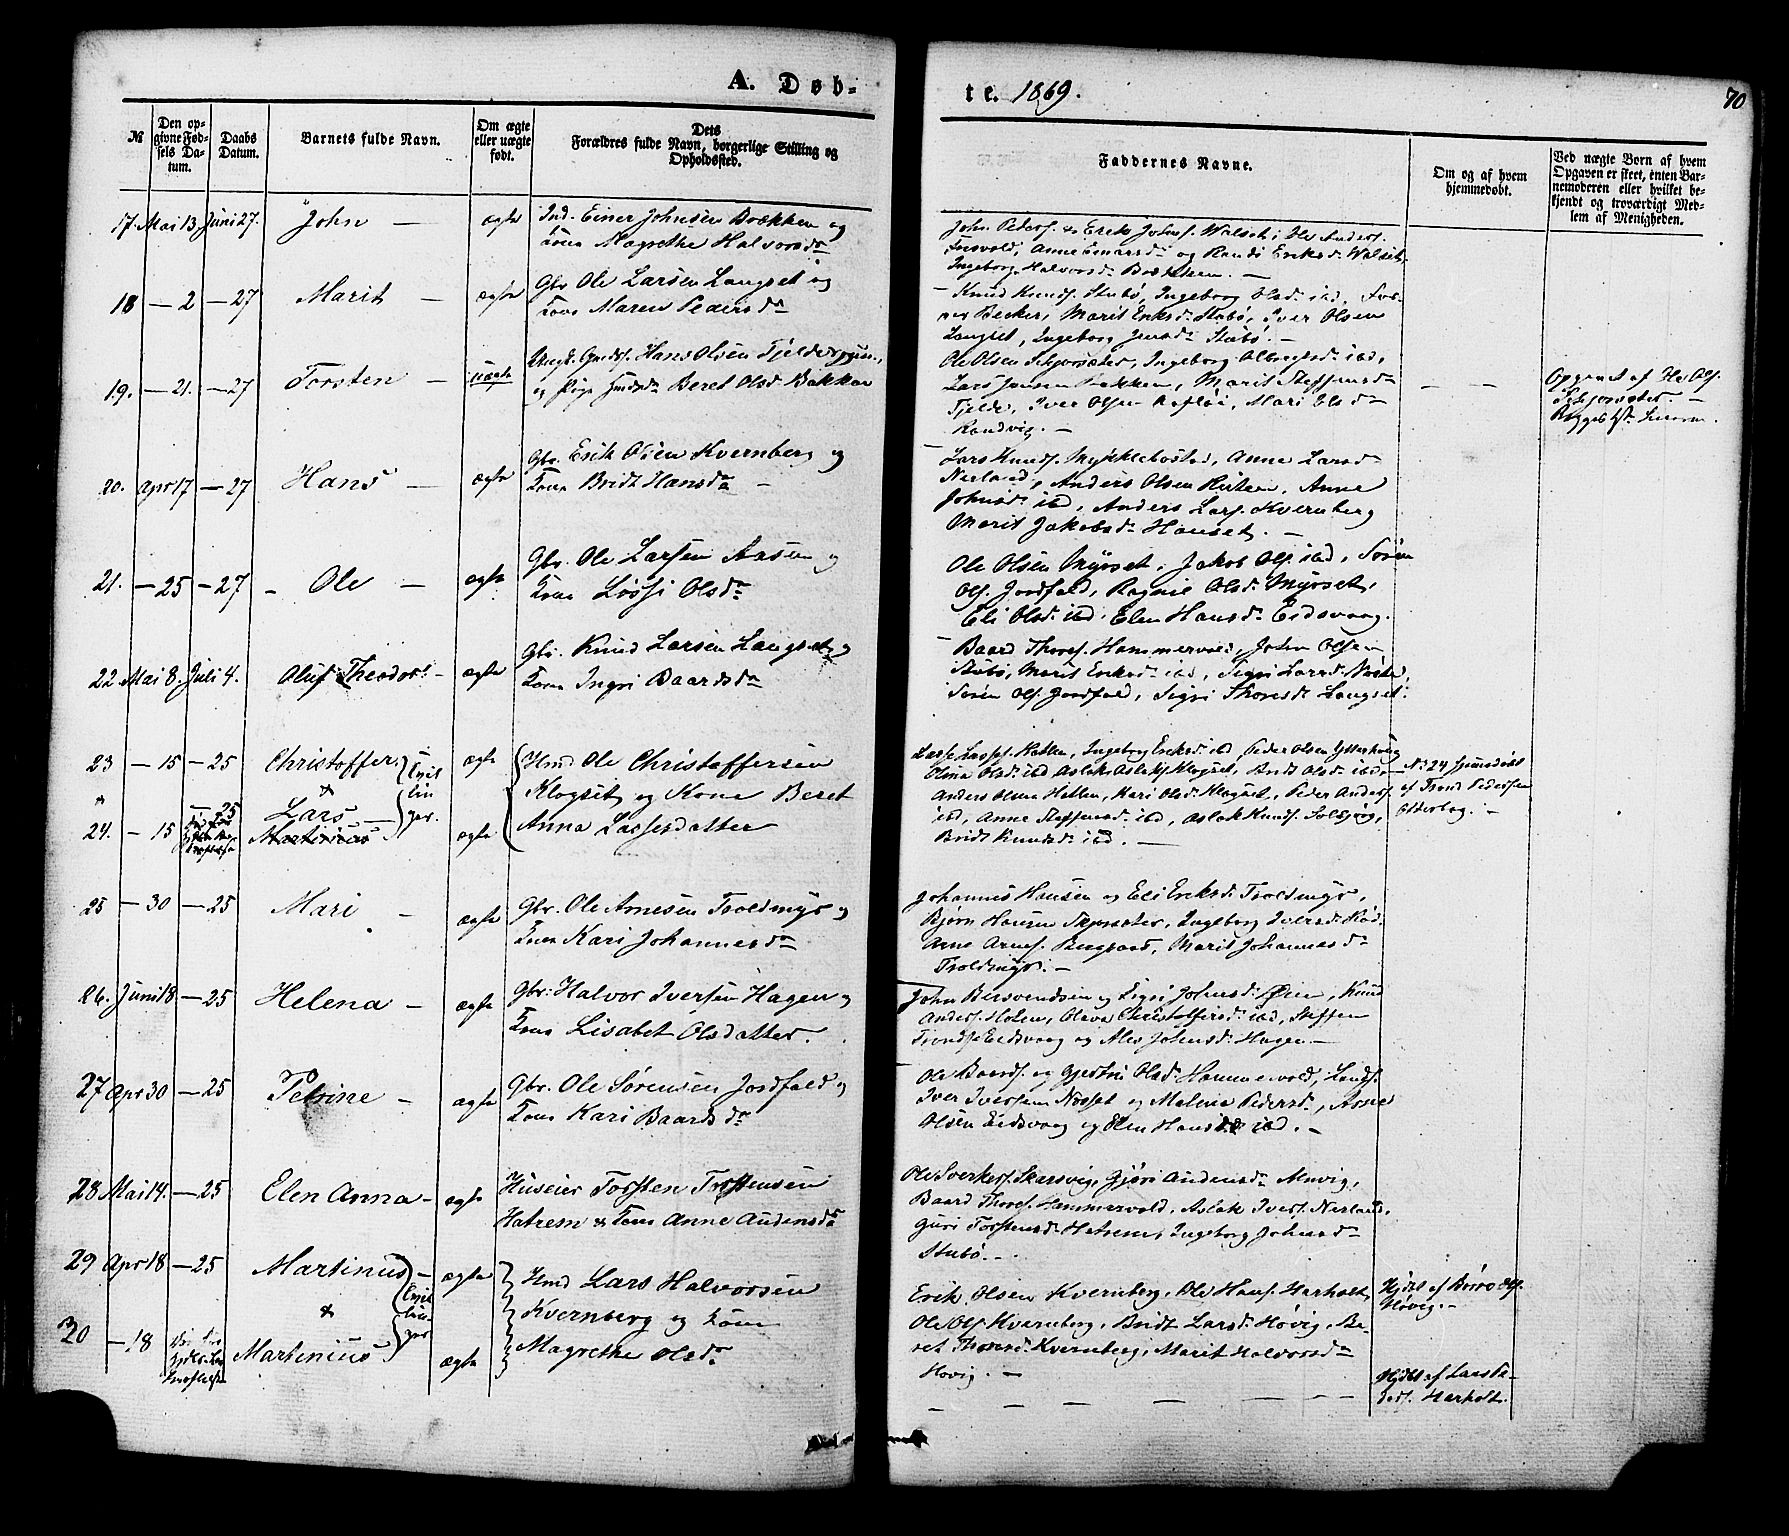 A. Døb-
te. 1869.
70
№
Den op-
givne Fød-
sels Da-
tum.
Daabs
Datum.
Barnets fulde Navn.
Om ægte
eller uægte
født.
Dets
Forældres fulde Navn, borgerlige Stilling og
Opholdssted.
Faddernes Navne.
Om og af hvem
hjemmedøbt.
Ved uægte Børn af hvem
Opgaven er skeet, enten Bar-
nemoderen eller hvilket be-
kjendt og troværdigt Med-
lem af Menigheden.
17. Mai 13. Juni 27. John — ægte Ind. Einer Johnsen Brækken og
Kone Magrethe Halvorsda
John Peders. & Erik Johns. Walset, Ole Anders.
Anne Einarsd. og Randi Eriksd. Walset,
Ingeborg Halvorsd. Brækken. —
18 — 2 — 27 Marit — ægte Gbr. Ole Larsen Langset og
Kone Maren Pedersda
Knud Knuds. Stubø, Ingeborg Olsd. ibd,
Becker, Marit Eriksd. Stubø, Iver Olsen
Langset, Ingeborg Stubø. —
19. — 21. — 27 Torsten — uægte Ungk. Hans Olsen Tjelde
og Pige Beret Olsd. Bakken
Ole Olsen Ingeborg ibd,
Lars Jensen Bakken, Marit Steffensda
Tjelde, Iver Olsen Mari Olsda
Randvig. —
Opgivet af Ole Ols.
20. Apr 17 — 27 Hans — ægte Gbr. Erik Olsen Kvernberg og
Kone Bridt Hansda —
Lars Knuds. Myklebostad, Anne Larsda
Nerland, Anders Olsen Anne
Johnsd. ibd, Anders Lars. Kvernberg
Marit Jakobsd. Hauset. —
21. — 25 — 27 Ole — ægte Gbr. Ole Larsen Aasen og
Kone Lossi Olsda
Ole Olsen Myrset, Jakob Ols. ibd, Søren
Ols. Jordfald, Ragnil Olsd. Myrset,
Eli Olsd. ibd, Elen Hansd. Eidsvaag.
22 Mai 8. Juli 4. Oluf Theodor. — ægte Gbr. Knud Larsen Langset og
Kone Ingri Baardsda
Baard Thores. Hammervold, John Olsen
Stubø, Marit Eriksd. ibd, Sigri Larsd.
Søren Ols. Jordfald, Sigri Thoresd. Langset.
23 — 15 — 25 Christoffer. ægte Ole Christoffersen
& Tvil
lin
ger.
Klogset og Kone Beret
24. — 15 — 25 Lars — Martinius ægte Anna Lassesdatter
Lasse Lasses. Hatlen, Ingeborg Eriksd. ibd, Peder Olsen
Olina Olsd. ibd Aslak Aslaks. Klogset, Bridt Olsd. ibd,
Anders Olsen Hatlen, Kari Olsd. Klogset, Peder Anders.
ibd, Anne Steffensd. ibd, Aslak Knuds. Solbjørg,
Bridt Knudsd. ibd. —
No 24 hjemmedøbt
af Trond Pedersen
25 — 30 — 25 Mari — ægte Gbr. Ole Arnesen Troldmyr og
Kone Kari Johannesda
Johannes Hansen og Eli Eriksd. Troldmyr,
Bjørn Hansen Ingeborg Iversd.
Arne Arnes. Marit Johannesda
Troldmyr. —
26. Juni 18. — 25 Helena — ægte Gbr. Halvor Iversen Hagen og
Kone Lisabet Olsdatter.
John Bersvendsen og Sigri Johnsd. Øien, Knud
Anders. Holen, Olava Christoffersd. ibd, Steffen
Tronds. Eidsvaag og Ales Johnsd. Hagen —
27 Apr 30 — 25 Petrine — ægte Gbr. Ole Sørensen Jordfald og
Kone Kari Baardsda
Ole Baards. og Gjertri Olsd. Hammervold,
Iver Iversen Nosset og Malena Pedersd., Arne
Olsen Eidsvaag og Elen Hansd. ibd. —
28 Mai 14. — 25 Elen Anna — ægte Huseier Torsten Torstensen
Hatrem & Kone Anne Audensda
Ole Sverkes. Skarsvig, Gjøri Audensda
Baard Thores. Hammervold, Aslak Ivers. Nerland,
Guri Torstensd. Hatrem, Ingeborg Johnsda
Stubø. —
29 Apr 18 — 25 Martinus — ægte Lars Halvorsen
& Tvil
lin-
ger
Kvernberg og Kone
30 — 18 Martinius ægte Magrethe Olsda
Erik Olsen Kvernberg, Ole Hans. Harholt,
Ole Ols. Kvernberg, Bridt Larsd. Høvig, Be-
ret Thoresd. Kvernberg, Marit Halvorsda
Høvig. —
Hjdbt af Ols.
Høvig. —
Hjdbt af Lars Pe-
ders. Harholt.